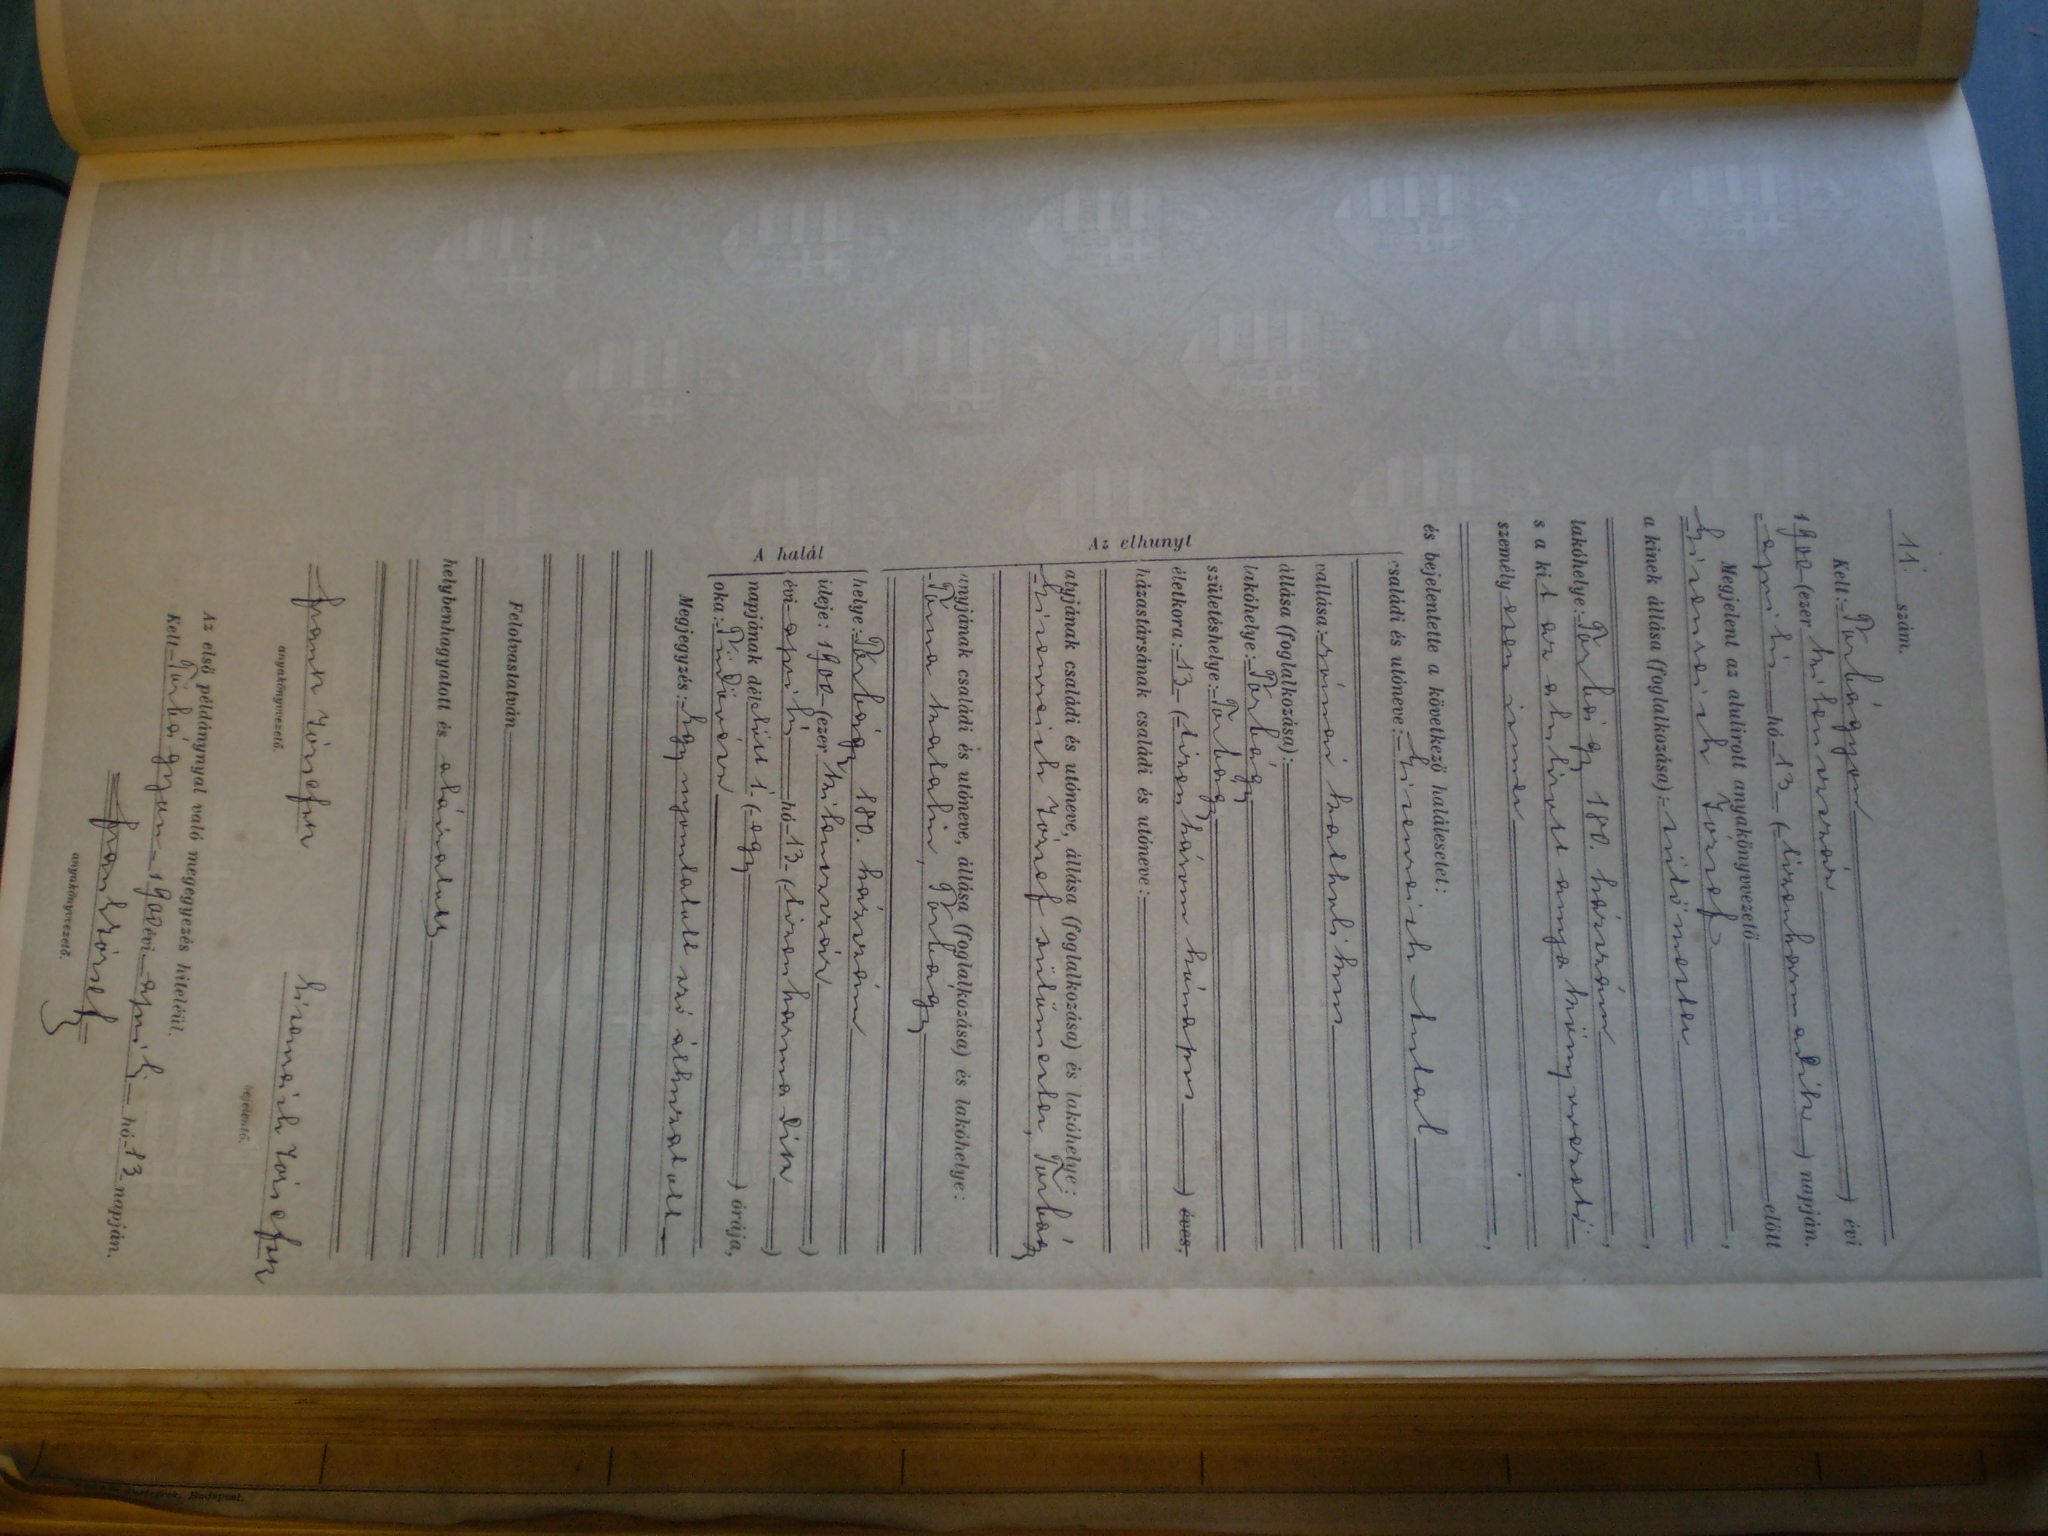 11. szám.
Kelt: Torbágyon ) évi
1900 (ezer kilencszáz
április hó 13 (tizenharmadik) napján.
Megjelent az alulirott anyakönyvezető előtt
József,
a kinek állása (foglalkozása): sütőmester,
lakóhelye: Torbágy 180. házszám,
s a kit az alulirt anyakönyvvezető
személyesen ismer,
és bejelentette a következő halálesetet:
Az elhunyt
családi és utóneve: Antal
vallása: római katholikus
állása (foglalkozása):
lakóhelye: Torbágy
születéshelye: Torbágy
életkora: 13 (tizenhárom hónapos ) éves,
házastársának családi és utóneve:
atyjának családi és utóneve, állása (foglalkozása) és lakóhelye:
József sütőmester, Torbágy
anyjának családi és utóneve, állása (foglalkozása) és lakóhelye:
Katalin, Torbágy
A halál
helye: Torbágy 180. házszám
ideje: 1900 (ezer kilencszáz )
évi április hó 13 (tizenharmadik )
napjának délelőtt 1 (egy ) órája,
oka: Tüdővész
Megjegyzés: Egy nyomtatott szó áthuzatott.
Felolvastatván
helybenhagyatott és aláiratott
József
anyakönyvvezető.
József
bejelentő.
Az első példánynyal való megegyezés hiteléül.
Kelt Torbágyon 1900 évi április hó 13 napján.
József
anyakönyvvezető.
Budapest.